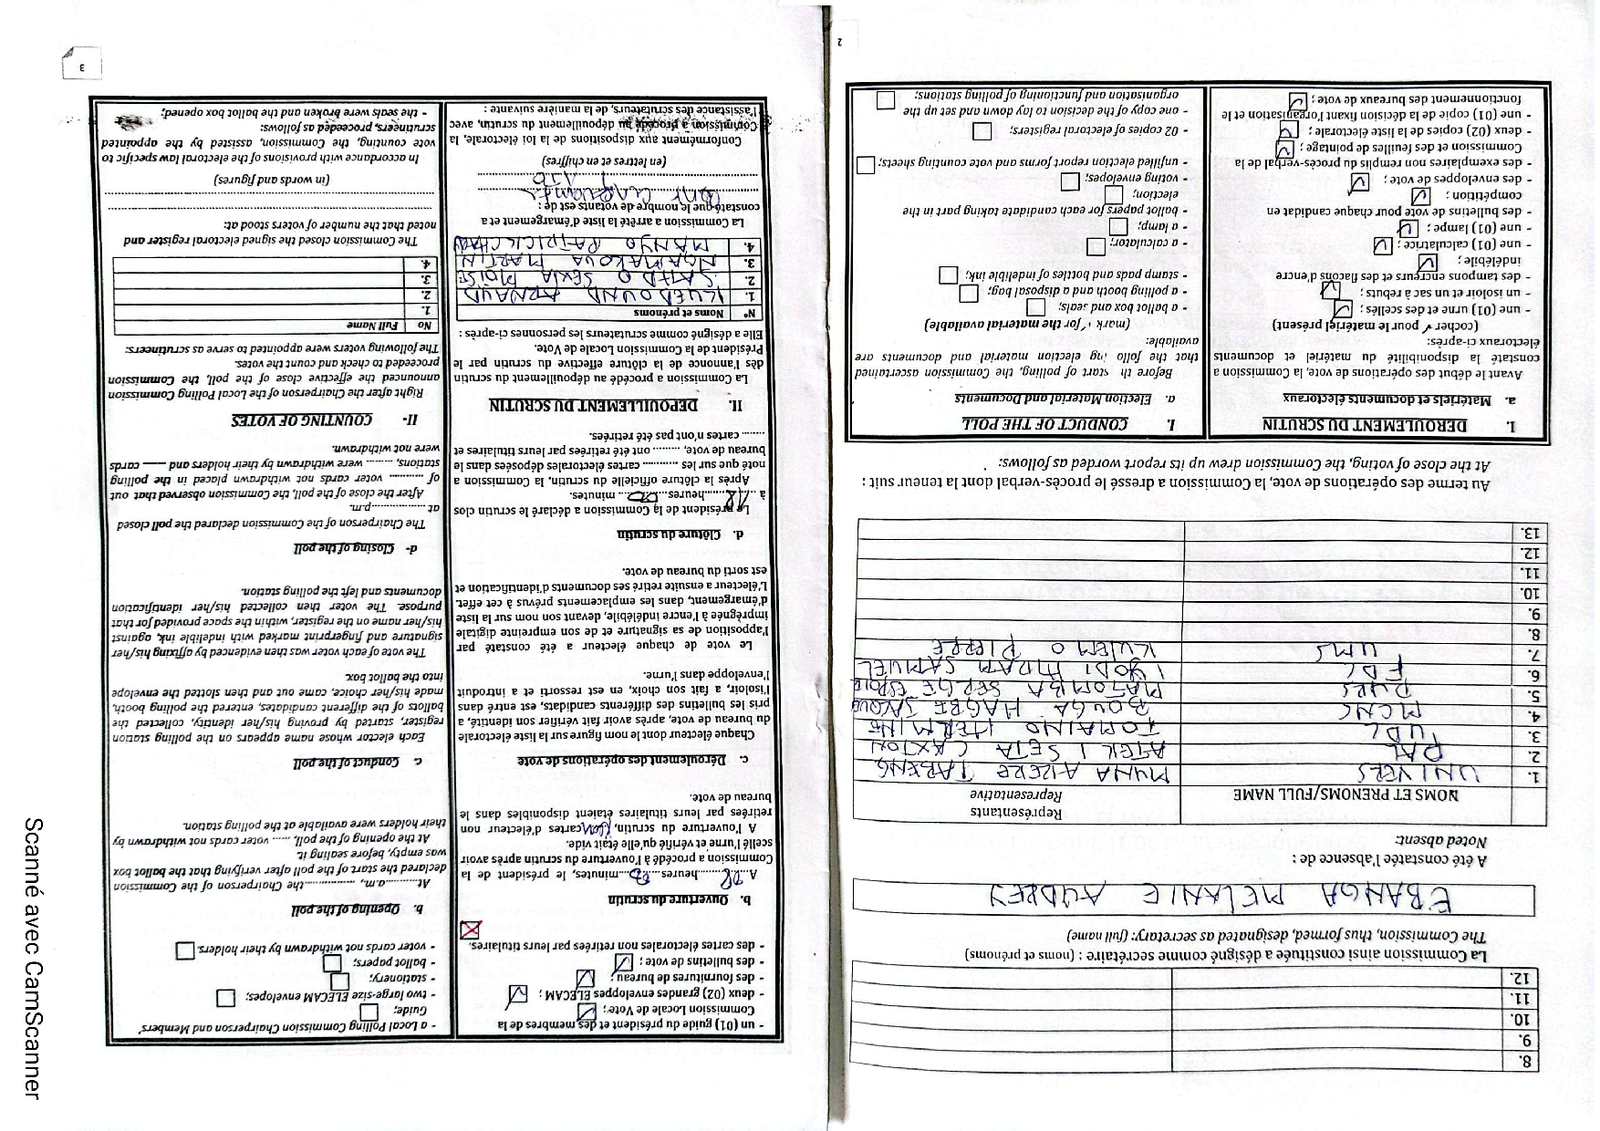 2
8.
9.
10.
11.
12.
La Commission ainsi constituée a désigné comme secrétaire : (noms et prénoms)
The Commission, thus formed, designated as secretary: (full name)
EBANGA MELANIE AUDREY
A été constatée l'absence de :
Noted absent:
NOMS ET PRENOMS/FULL NAME
Représentants
Representative
1. UNIVERS MUNA AKERE TABENG
2. PAL ATEKI SETA CAXTON
3. UDC TOMAINO HERMINE
4. MCNC BOUGA HAGBE JACQUES
5. PURS MATOMBA SERGE ESPOIR
6. FDC IYODI HIRAM SAMUEL
7. UMS KWEMO PIERRE
8.
9.
10.
11.
12.
13.
Au terme des opérations de vote, la Commission a dressé le procès-verbal dont la teneur suit :
At the close of voting, the Commission drew up its report worded as follows:
I. DEROULEMENT DU SCRUTIN
a. Matériels et documents électoraux
Avant le début des opérations de vote, la Commission a
constaté la disponibilité du matériel et documents
électoraux ci-après:
(cocher ✓ pour le matériel présent)
- une (01) urne et des scellés ;
- un isoloir et un sac à rebuts ;
- des tampons encreurs et des flacons d'encre
indélébile;
- une (01) calculatrice ;
- une (01) lampe ;
- des bulletins de vote pour chaque candidat en
compétition ;
- des enveloppes de vote ;
- des exemplaires non remplis du procès-verbal de la
Commission et des feuilles de pointage ;
- deux (02) copies de la liste électorale ;
- une (01) copie de la décision fixant l'organisation et le
fonctionnement des bureaux de vote ;
I. CONDUCT OF THE POLL
a. Election Material and Documents
Before th start of polling, the Commission ascertained
that the follo ing election material and documents are
available:
(mark ✓ for the material available)
- a ballot box and seals;
- a polling booth and a disposal bag;
- stamp pads and bottles of indelible ink;
- a calculator;
- a lamp;
- ballot papers for each candidate taking part in the
election;
- voting envelopes;
- unfilled election report forms and vote counting sheets;
- 02 copies of electoral registers;
- one copy of the decision to lay down and set up the
organisation and functioning of polling stations;
3
- un (01) guide du président et des membres de la
Commission Locale de Vote;
- deux (02) grandes enveloppes ELECAM ;
- des fournitures de bureau ;
- des bulletins de vote ;
- des cartes électorales non retirées par leurs titulaires.
b. Ouverture du scrutin
A 08 heures 00 minutes, le président de la
Commission a procédé à l'ouverture du scrutin après avoir
scellé l'urne et vérifié qu'elle était vide.
A l'ouverture du scrutin, cartes d'électeur non
retirées par leurs titulaires étaient disponibles dans le
bureau de vote.
c. Déroulement des opérations de vote
Chaque électeur dont le nom figure sur la liste électorale
du bureau de vote, après avoir fait vérifier son identité, a
pris les bulletins des différents candidats, est entré dans
l'isoloir, a fait son choix, en est ressorti et a introduit
l'enveloppe dans l'urne.
Le vote de chaque électeur a été constaté par
l'apposition de sa signature et de son empreinte digitale
imprégnée à l'encre indélébile, devant son nom sur la liste
d'émargement, dans les emplacements prévus à cet effet.
L'électeur a ensuite retiré ses documents d'identification et
est sorti du bureau de vote.
d. Clôture du scrutin
Le président de la Commission a déclaré le scrutin clos
à 18 heures 00 minutes.
Après la clôture officielle du scrutin, la Commission a
noté que sur les ........ cartes électorales déposées dans le
bureau de vote, ........ ont été retirées par leurs titulaires et
........ cartes n'ont pas été retirées.
II. DEPOUILLEMENT DU SCRUTIN
La Commission a procédé au dépouillement du scrutin
dès l'annonce de la clôture effective du scrutin par le
Président de la Commission Locale de Vote.
Elle a désigné comme scrutateurs les personnes ci-après :
N° Noms et prénoms
1. KUEDOUND ARNAUD
2. SAMDO SEXIA MOISE
3. NGAMAKOUA MARTIN
4. MANYO PATRICK
La Commission a arrêté la liste d'émargement et a
constaté que le nombre de votants est de :
cent cinquante
150
(en lettres et en chiffres)
Conformément aux dispositions de la loi électorale, la
Commission a procédé au dépouillement du scrutin, avec
l'assistance des scrutateurs, de la manière suivante :
- a Local Polling Commission Chairperson and Members'
Guide;
- two large-size ELECAM envelopes;
- stationery;
- ballot papers;
- voter cards not withdrawn by their holders.
b. Opening of the poll
At.........a.m., ............the Chairperson of the Commission
declared the start of the poll after verifying that the ballot box
was empty, before sealing it.
At the opening of the poll, ...... voter cards not withdrawn by
their holders were available at the polling station.
c. Conduct of the poll
Each elector whose name appears on the polling station
register, started by proving his/her identity, collected the
ballots of the different candidates, entered the polling booth,
made his/her choice, came out and then slotted the envelope
into the ballot box.
The vote of each voter was then evidenced by affixing his/her
signature and fingerprint marked with indelible ink, against
his/her name on the register, within the space provided for that
purpose. The voter then collected his/her identification
documents and left the polling station.
d- Closing of the poll
The Chairperson of the Commission declared the poll closed
at ..................p.m.
After the close of the poll, the Commission observed that out
of ........... voter cards not withdrawn placed in the polling
stations, ........ were withdrawn by their holders and —— cards
were not withdrawn.
II- COUNTING OF VOTES
Right after the Chairperson of the Local Polling Commission
announced the effective close of the poll, the Commission
proceeded to check and count the votes.
The following voters were appointed to serve as scrutineers:
No Full Name
1.
2.
3.
4.
The Commission closed the signed electoral register and
noted that the number of voters stood at:
(in words and figures)
In accordance with provisions of the electoral law specific to
vote counting, the Commission, assisted by the appointed
scrutineers, proceeded as follows:
- the seals were broken and the ballot box opened;
Scanné avec CamScanner